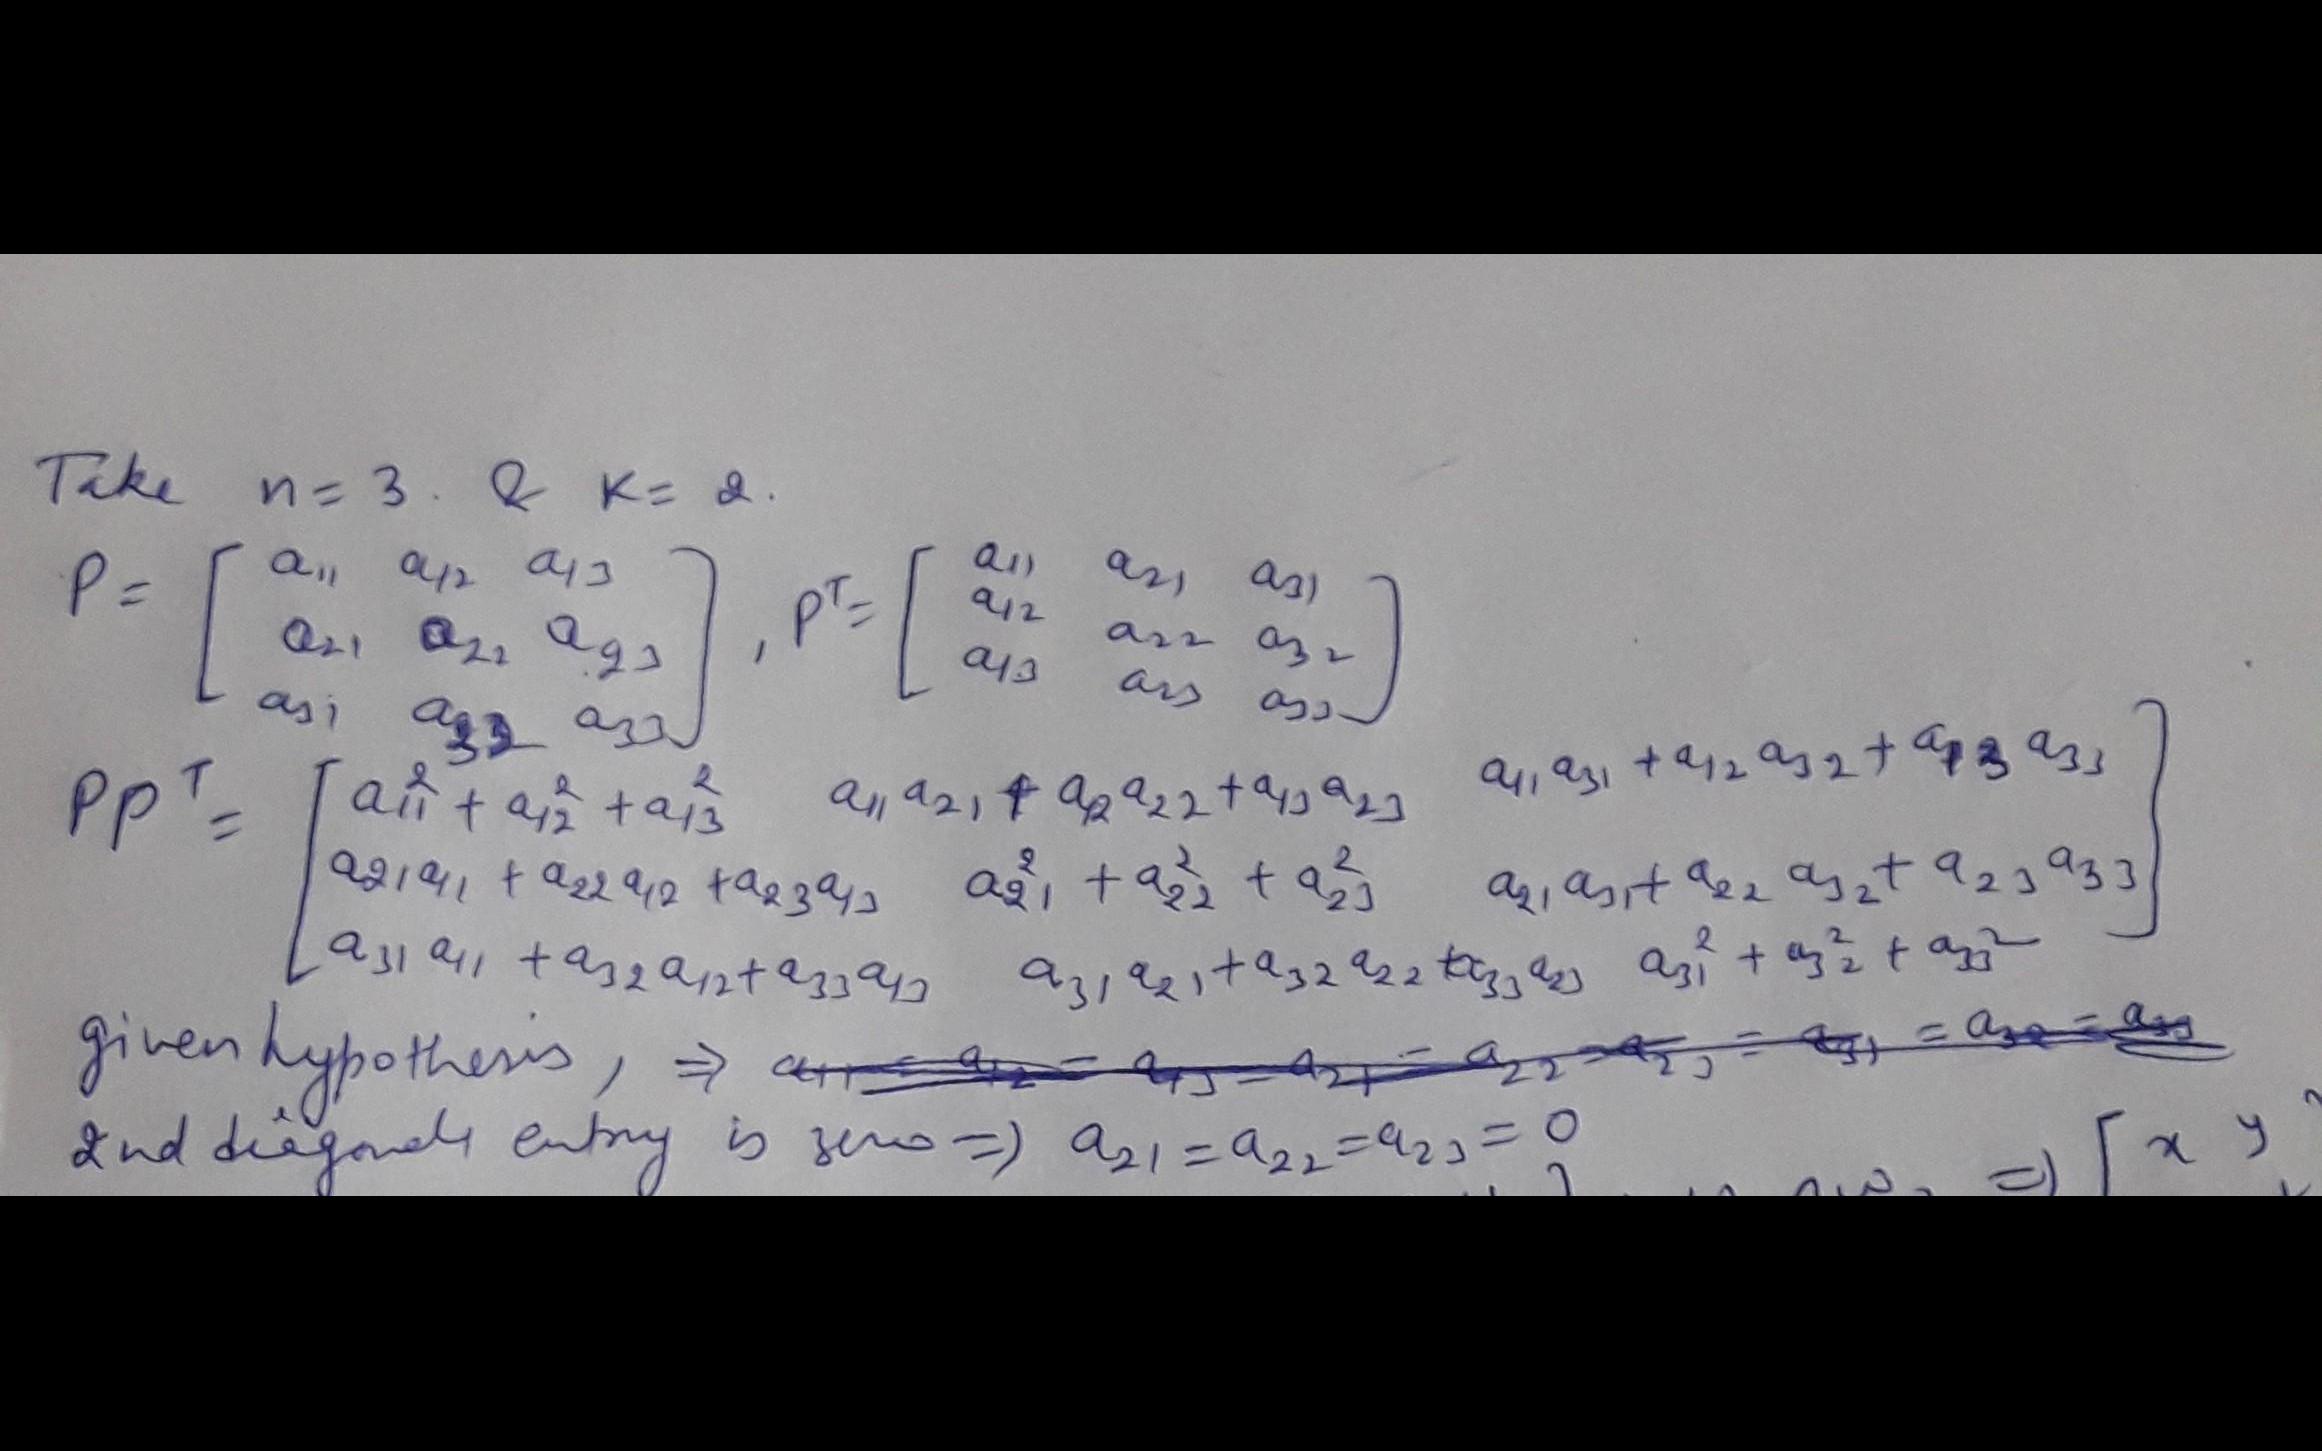 Take n = 3. & K = 2.
P = [ a11 a12 a13 ], P^T = [ a11 a21 a31 ]
a21 a22 a23 a12 a22 a32
a31 a32 a33 a13 a23 a33
PP^T = [ a11^2 + a12^2 + a13^2 a11 a21 + a12 a22 + a13 a23 a11 a31 + a12 a32 + a13 a33 ]
a21 a11 + a22 a12 + a23 a13 a21^2 + a22^2 + a23^2 a21 a31 + a22 a32 + a23 a33
a31 a11 + a32 a12 + a33 a13 a31 a21 + a32 a22 + a33 a23 a31^2 + a32^2 + a33^2
given hypothesis, ⇒ a11 = a12 = a13 = a21 = a22 = a23 = a31 = a32 = a33
2nd diagonal entry is zero ⇒ a21 = a22 = a23 = 0
⇒ [ x y